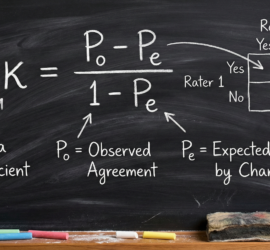 K = Po - Pe / 1 - Pe
Ra
Yes
Rater 1
Yes
No
a
cient
Po = Observed
Agreement
Pe = Expected
by Chan